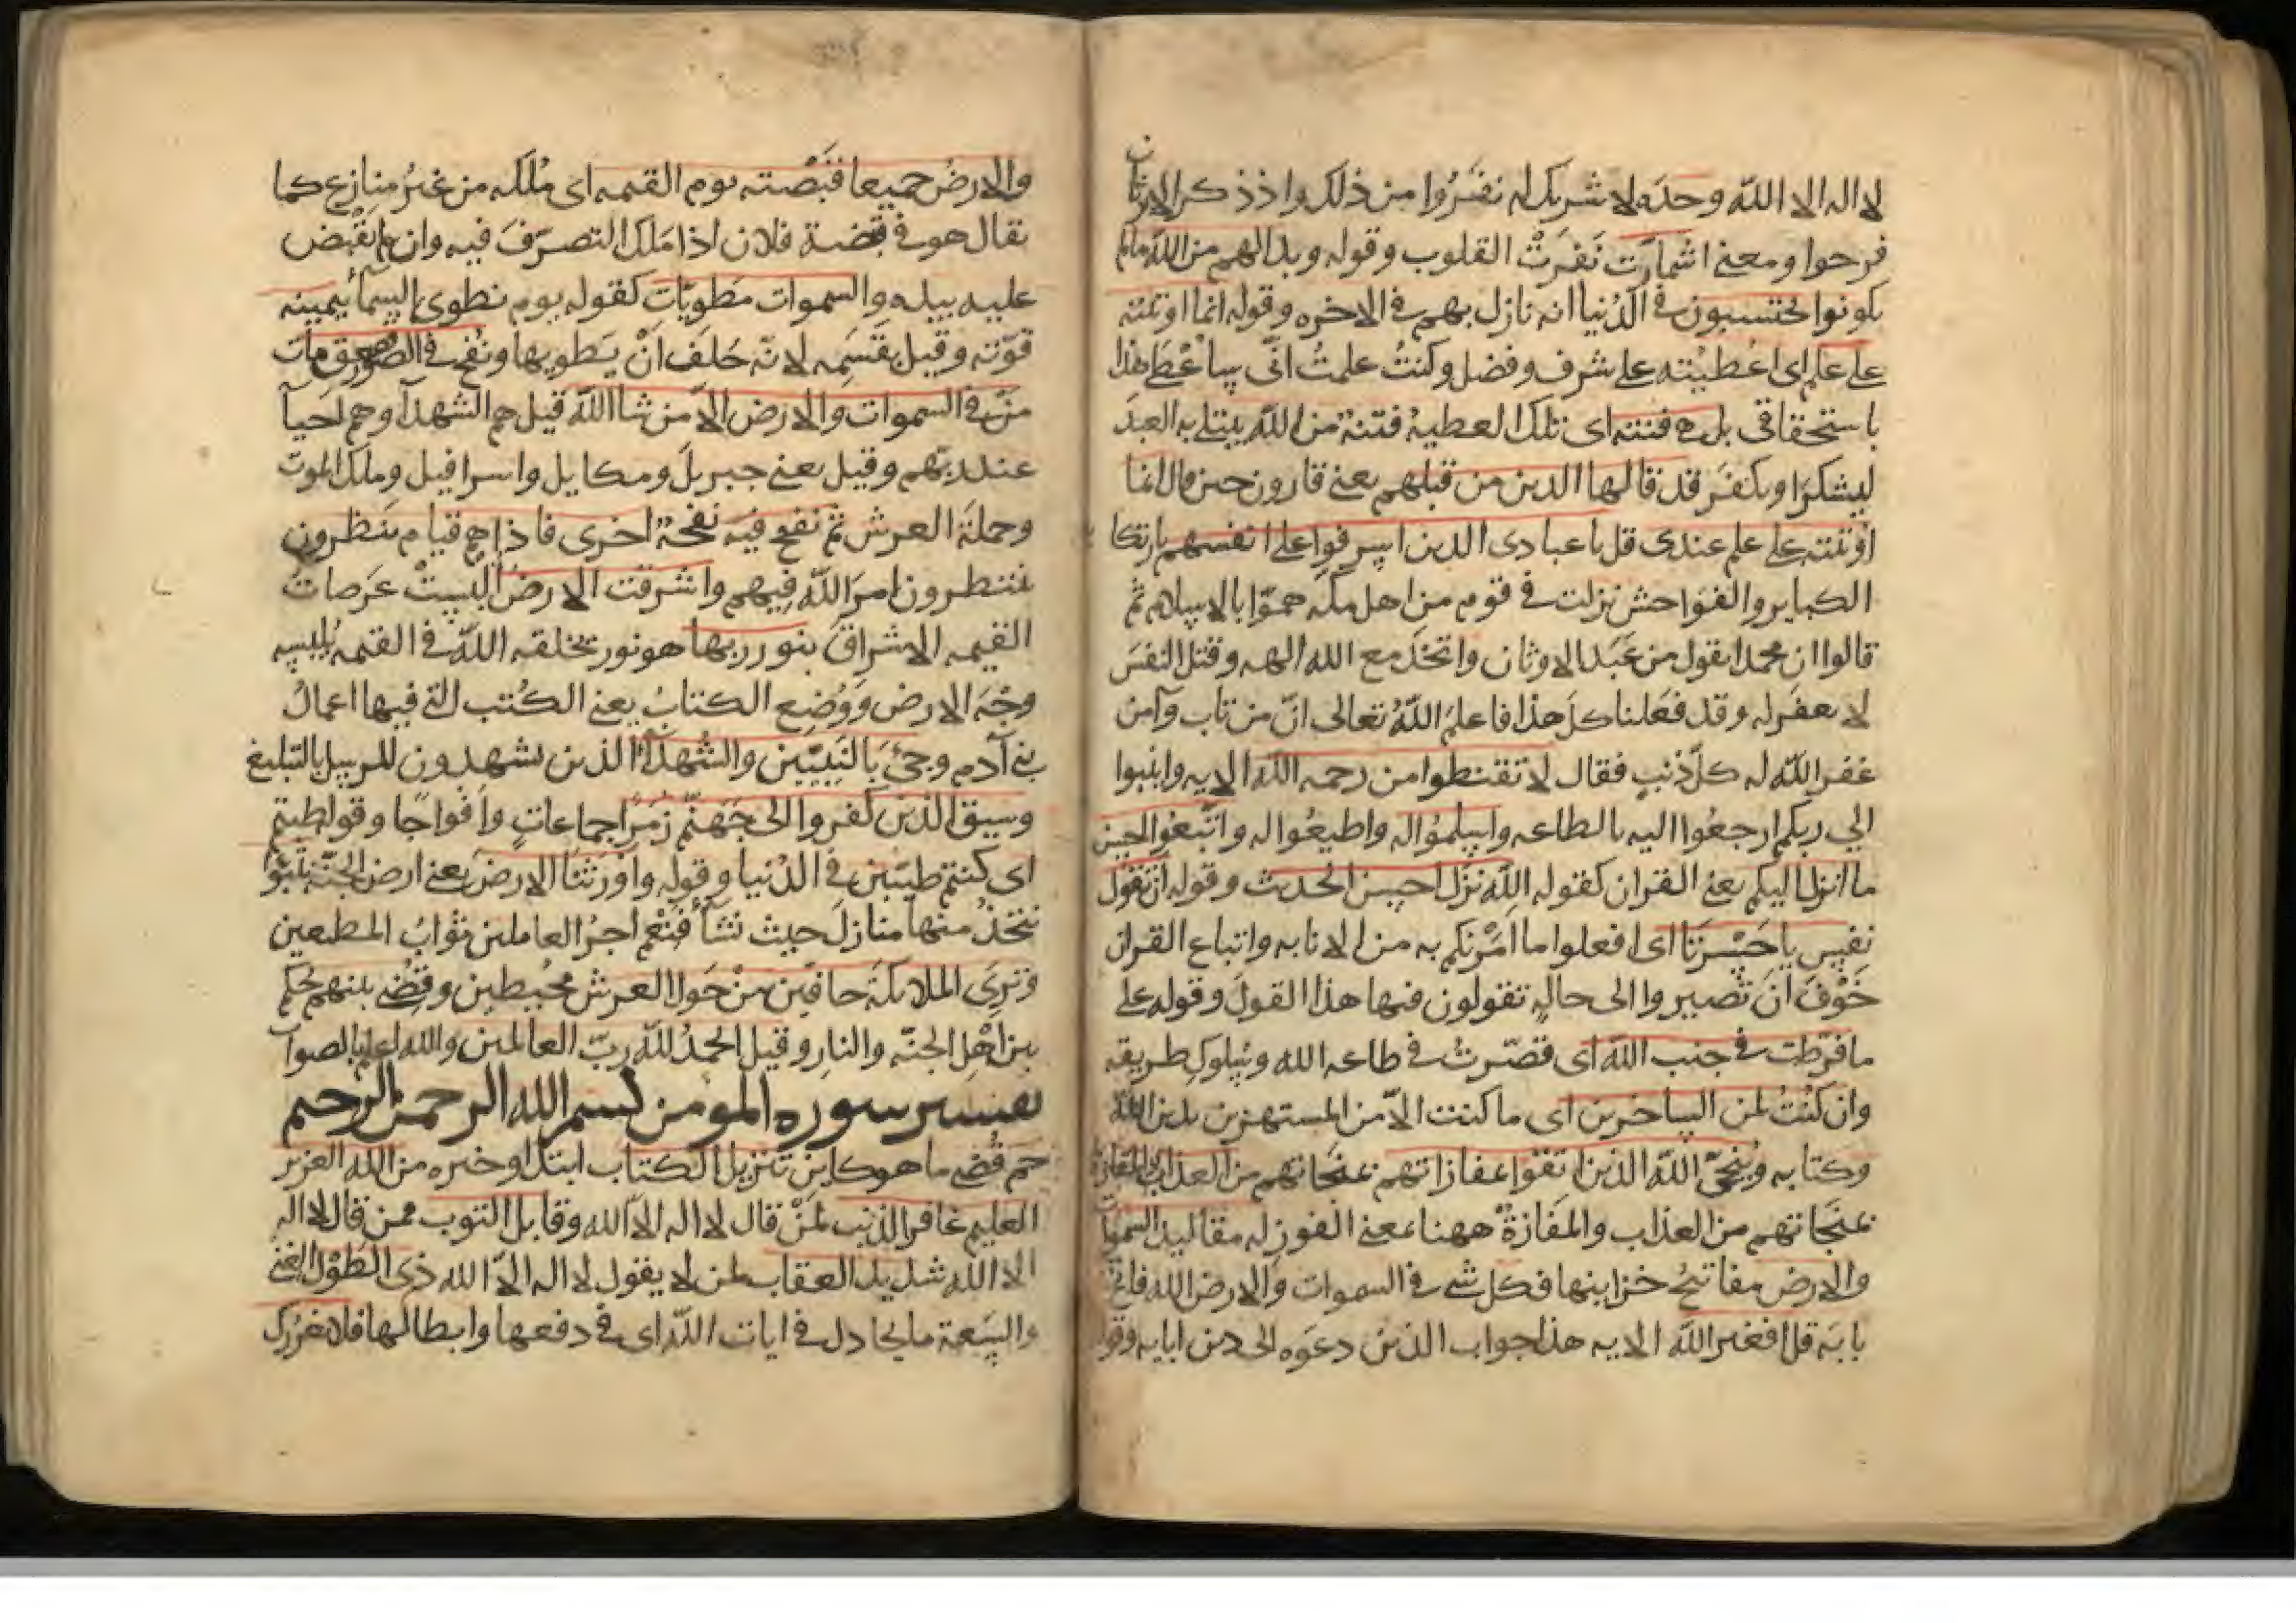 لا اله الا الله وحده لا شريك له نفروا من ذلك واذ ذكر الاوثان
فرحوا ومعنى اشمأزّت نَفَرَتْ القلوب وقوله وبدا لهم من الله مالم
يكونوا يحتسبون في الدُنيا انه نازل بهم في الاخره وقوله انما اوتيته
على علم اى اعُطيْته على شرف وفضل وكنتُ علمتُ انّى سأعْطَى هذا
باستحقاقى بل هى فتنة اى تلك العطية فتنة من الله يبتلى به العبدَ
ليشكرَ او يكفرَ قد قالها الذين من قبلهم يعنى قارون حين قال انما
اوتيته على علم عندى قل يا عبادى الذين اسرفوا على انفسهم بارتكا
الكباير والفواحش نزلت في قوم من اهل مكه همّوا بالاسلام ثم
قالوا ان محمدا يقول من عَبَد الاوثان واتخذ مع الله الهه وقتل النفسَ
لا يغفر له وقد فعلنا كل هذا فاعلمَ اللهُ تعالى انّ من تاب وآمن
غفر الله له كلّ ذنبٍ فقال لا تقنطوا من رحمه الله الايه وانيبوا
الى ربكم ارجعُوا اليه بالطاعه واسلموُا له واطيعُوا له واتّبعُوا احسن
ما انزل اليكم يعنى القران كقوله الله نزّل احسن الحديث وقوله ان تقول
نفس يا حَسْرَتَا اى افعلوا ما اَمَرْتكم به من الانابه واتباع القران
خَوْفَ اَنَ تصيروا الى حالٍه تقولون فيها هذا القولَ وقوله على
ما فرّطت فى جنب الله اى قصّرتُ فى طاعه الله وسلوك طريقه
وان كنْتُ لمن الساخرين اى ما كنت الاّ من المستهزين بدين الله
وكتابه ويُنجىّ الله الذين اتقوا بمفازاتهم بمنجاتهم من العذاب المفازة
بمنجاتهم من العذاب والمفَازةُ ههنا بمعنى الفوز له مقاليد السموات
والارض مفاتيحُ خزاينها فكل شى فى السموات والارض الله فاتح
بابَه قل افغير الله الايه هذا جواب الذين دعَوَه الى دين ابايه وقو
والارضُ جميعا قَبْضته يوم القيمه اى مُلْكه من غير مُنازع كما
يقال هو فى قبضة فلان اذا مَلك التصرّفَ فيه وان لم يقْبض
عليه بيده والسموات مَطويّات كقوله يوم نطوى السمآ بيمينه
قوّته وقيل بقَسَمِه لانّه حَلَفَ اَنْ يَطويها ونُفخ فى الصّور فصعق مات
مَنْ فى السموات والارض الاّ من شا اللهُ قيل هم الشهدآ وهم احيآ
عند ربّهم وقيل يعنى جبريلَ ومكايل واسرافيل وملك الموت
وحملَةَ العرش ثم نفخ فيه نفخة اخرى فاذا هم قيام ينظرون
ينتظرون امرَ الله فيهم واشرقت الارض اُلبستْ عَرَصاتُ
القيمه الاشراقَ بنور ربها هو نور يخلقه الله فى القيمه يُلبسه
وجْهَ الارض وَوُضِع الكتابُ يعنى الكُتب التى فيها اعمالُ
بنى آدم وجئَ بالنَبِيّين والشُهدآ الذين يشهدون للرسل بالتبليغ
وسيق الذين كفروا الى جَهَنّم زُمَرًا جماعاتٍ وافواجًا وقوله طبتم
اى كنتم طيّبين فى الدُنيا وقوله واوْرَثنَا الارضَ يعنى ارض الجنّة نَتَبَوّا
نتخذُ منها منازلَ حيث نشآ فنعْم اجرُ العاملين ثوابُ المطيعين
وترى الملايكَة حافّين من حَوْل العرش محيطين وقُضَى بينهم حكم
بين اهْل الجنّه والنار وقيل الحمدُ لله ربّ العالمين والله اعلم بالصواب
تفسير سوره المومن بسم الله الرحمن الرحيم
حم قُضى ما هو كاين تنزيل الكتاب ابتدا وخبره من الله العزيز
العليم غافر الذنب لمَنْ قال لا اله الاّ الله وقابل التوب ممن قال لا اله
الا الله شديد العقاب لمن لا يقول لا اله الاّ الله ذى الطَوْل الغنى
والسَعة ما يجادل فى ايات الله اى فى دفعها وابطالها فلا يغررك